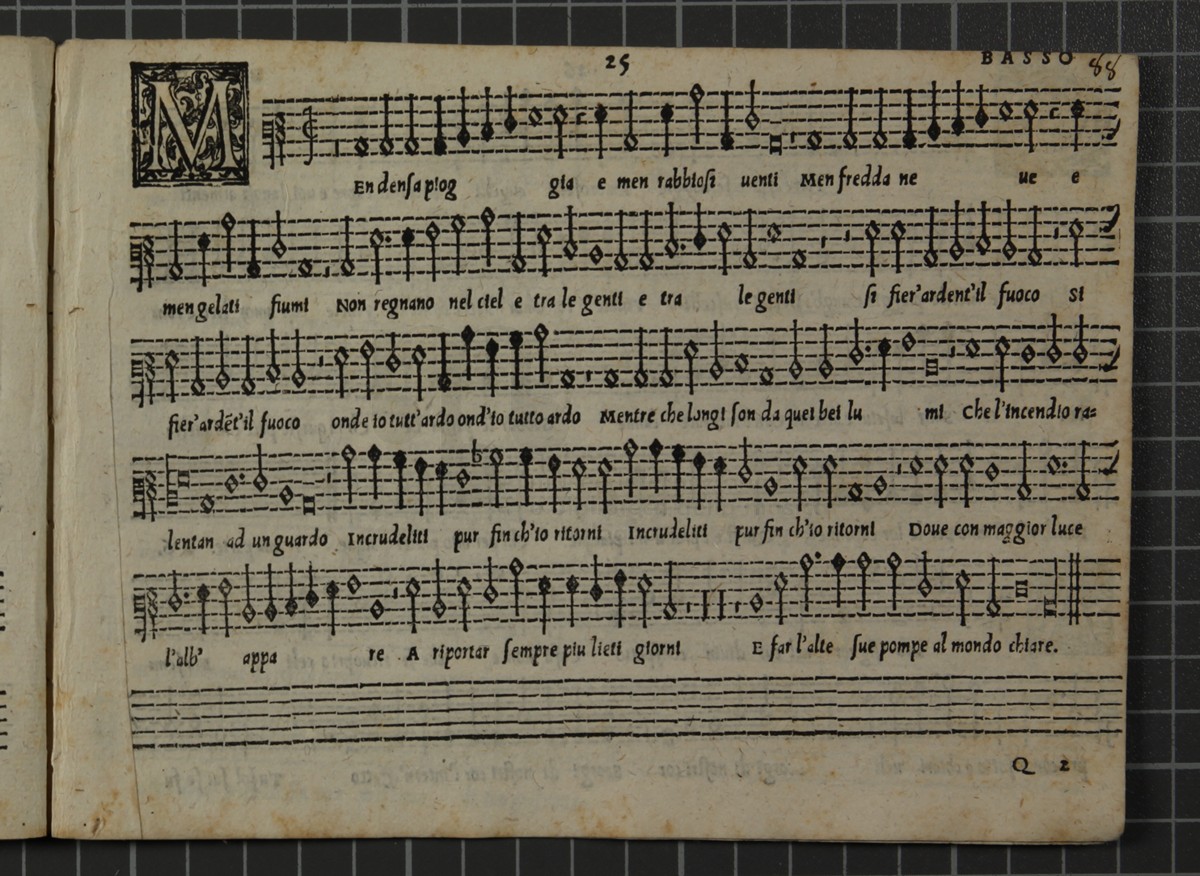 25 BASSO 88
MEn densa piog gia e men rabbiosi uenti Men fredda ne ue e
men gelati fiumi Non regnano nel ciel e tra le genti e tra le genti si fier'ardent'il fuoco si
fier'ardẽt'il fuoco onde io tutt'ardo ond'io tutto ardo Mentre che lungi son da quei bei lu mi Che l'incendio ra=
lentan ad un guardo Incrudeliti pur fin ch'io ritorni Incrudeliti pur fin ch'io ritorni Doue con maggior luce
l'alb' appa re A riportar sempre piu lieti giorni E far l'alte sue pompe al mondo chiare.
Q 2